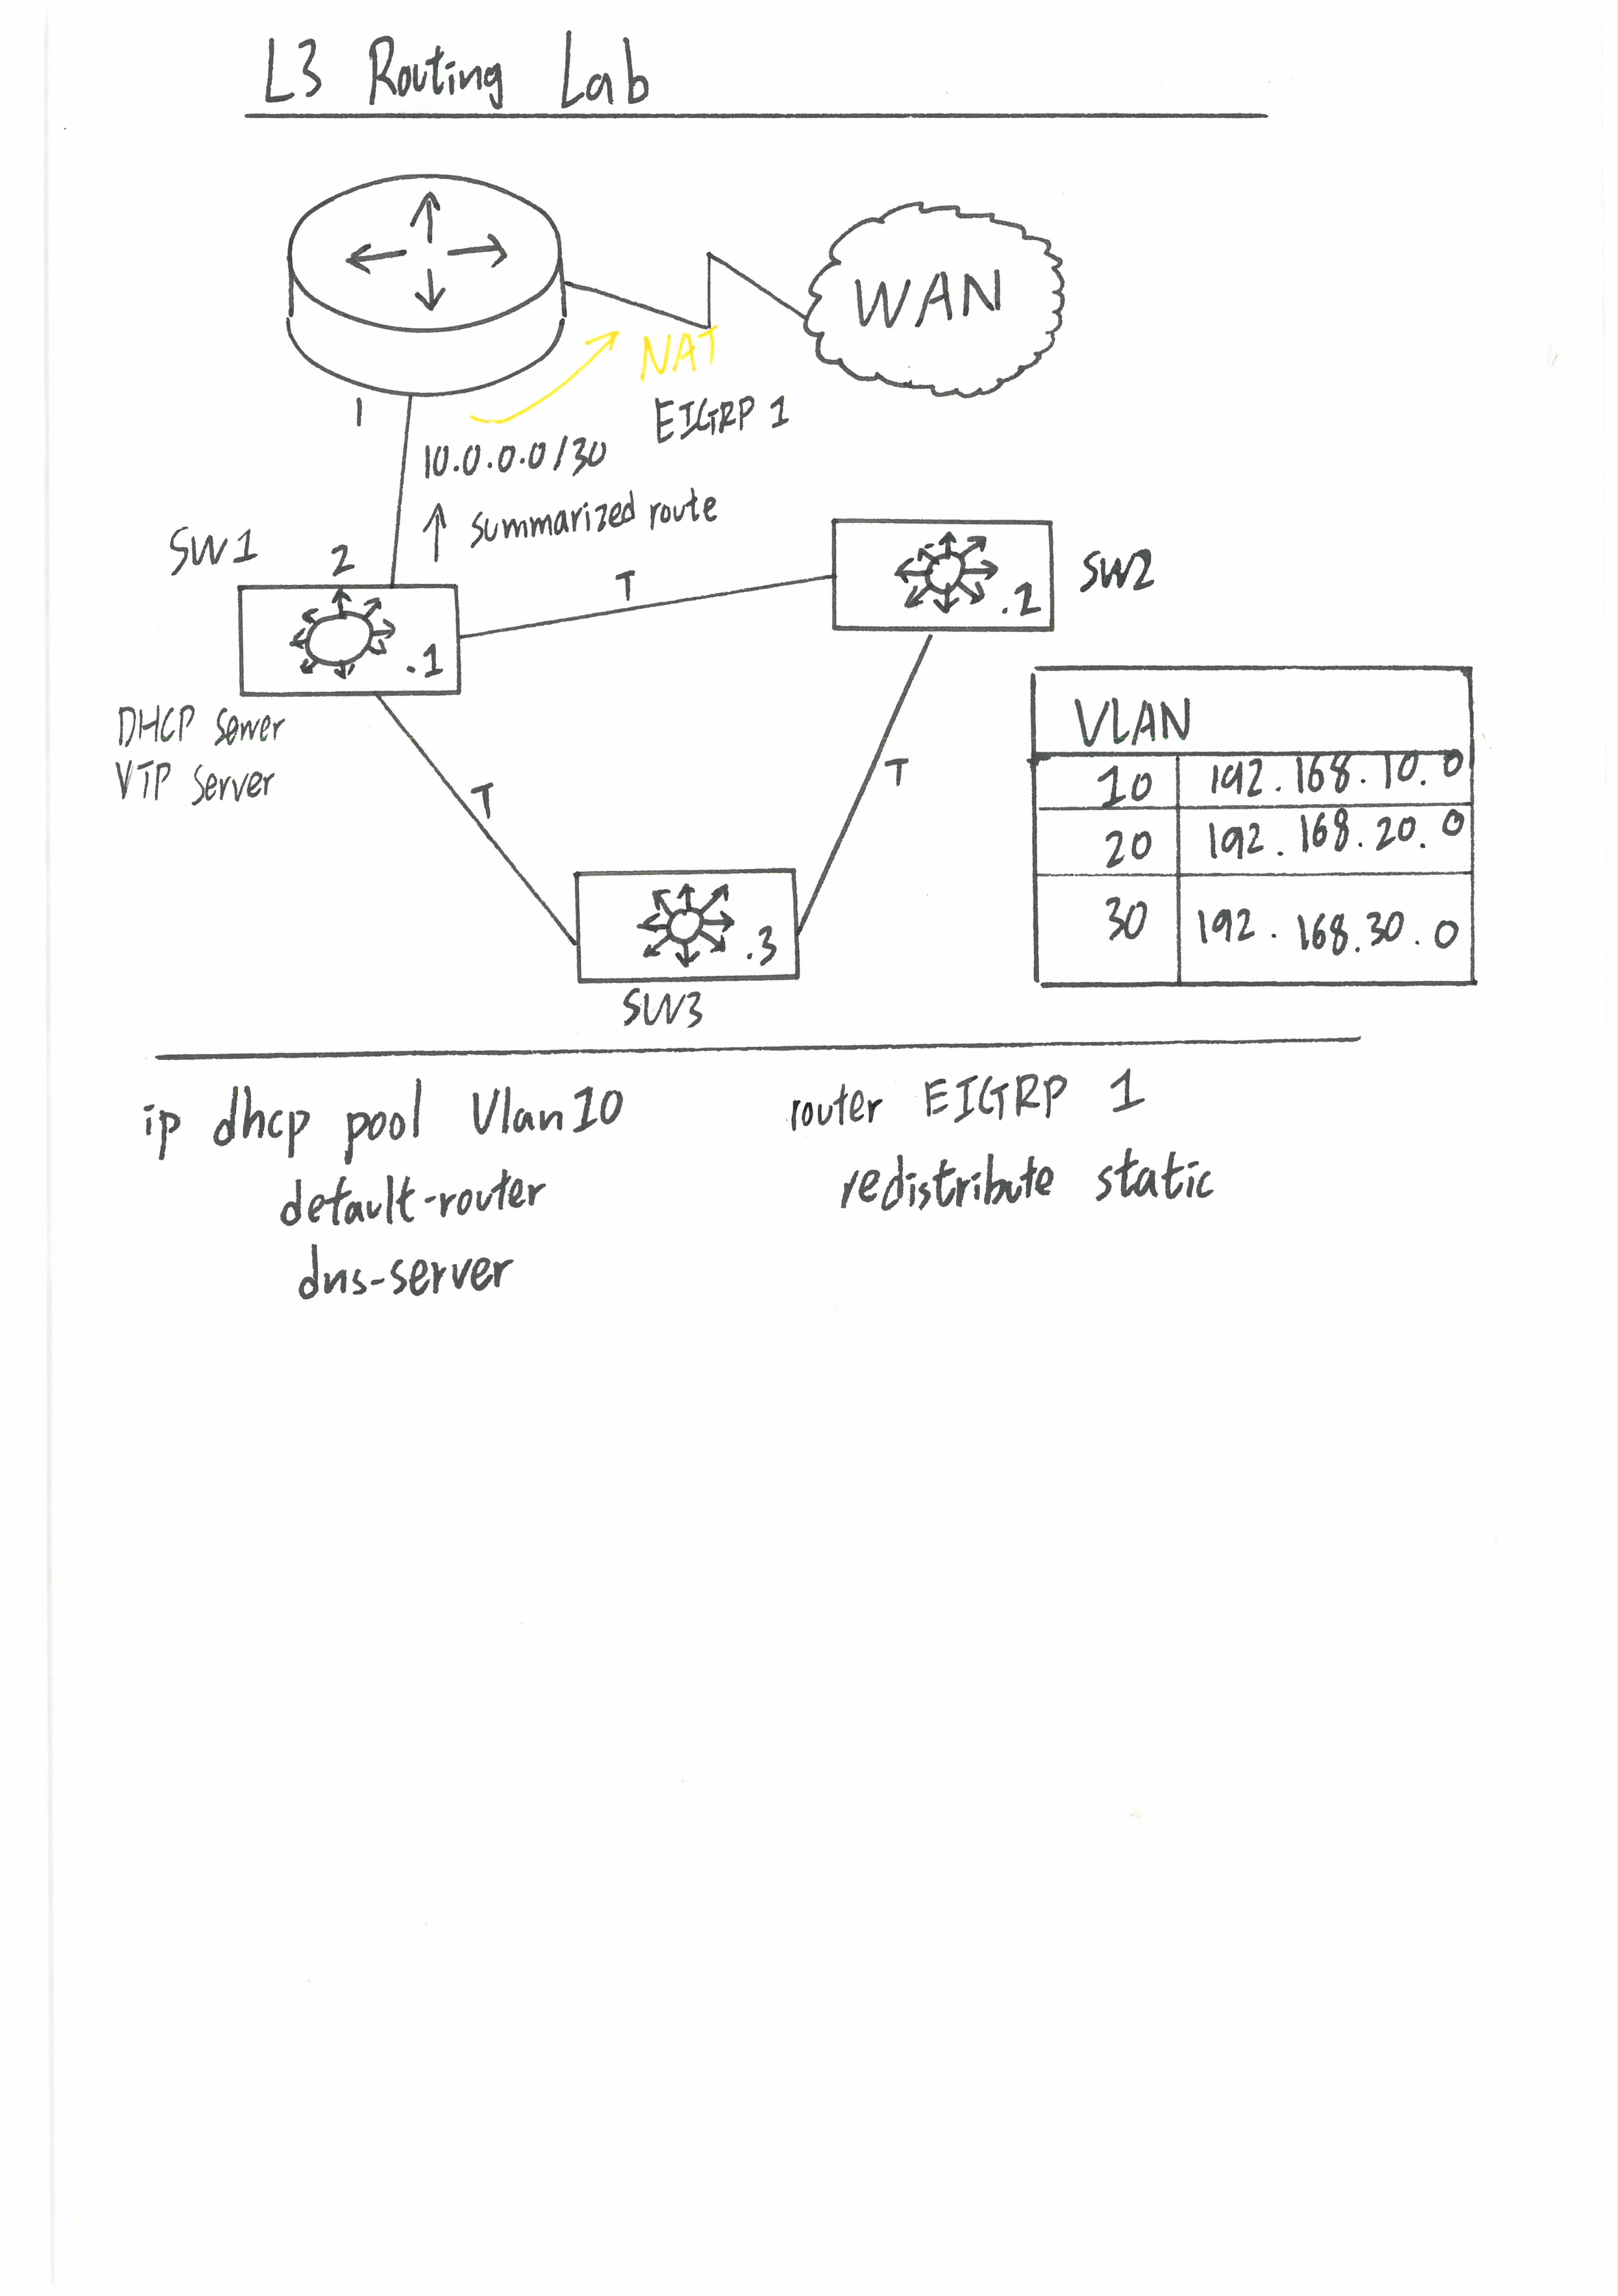 L3 Routing Lab
WAN
NAT
EIGRP 1
1
10.0.0.0/30
↑ summarized route
SW1
2
T
SW2
.2
.1
DHCP Server
VTP Server
T
T
VLAN
10 192.168.10.0
20 192.168.20.0
30 192.168.30.0
.3
SW3
ip dhcp pool Vlan10
default-router
dns-server
router EIGRP 1
redistribute static